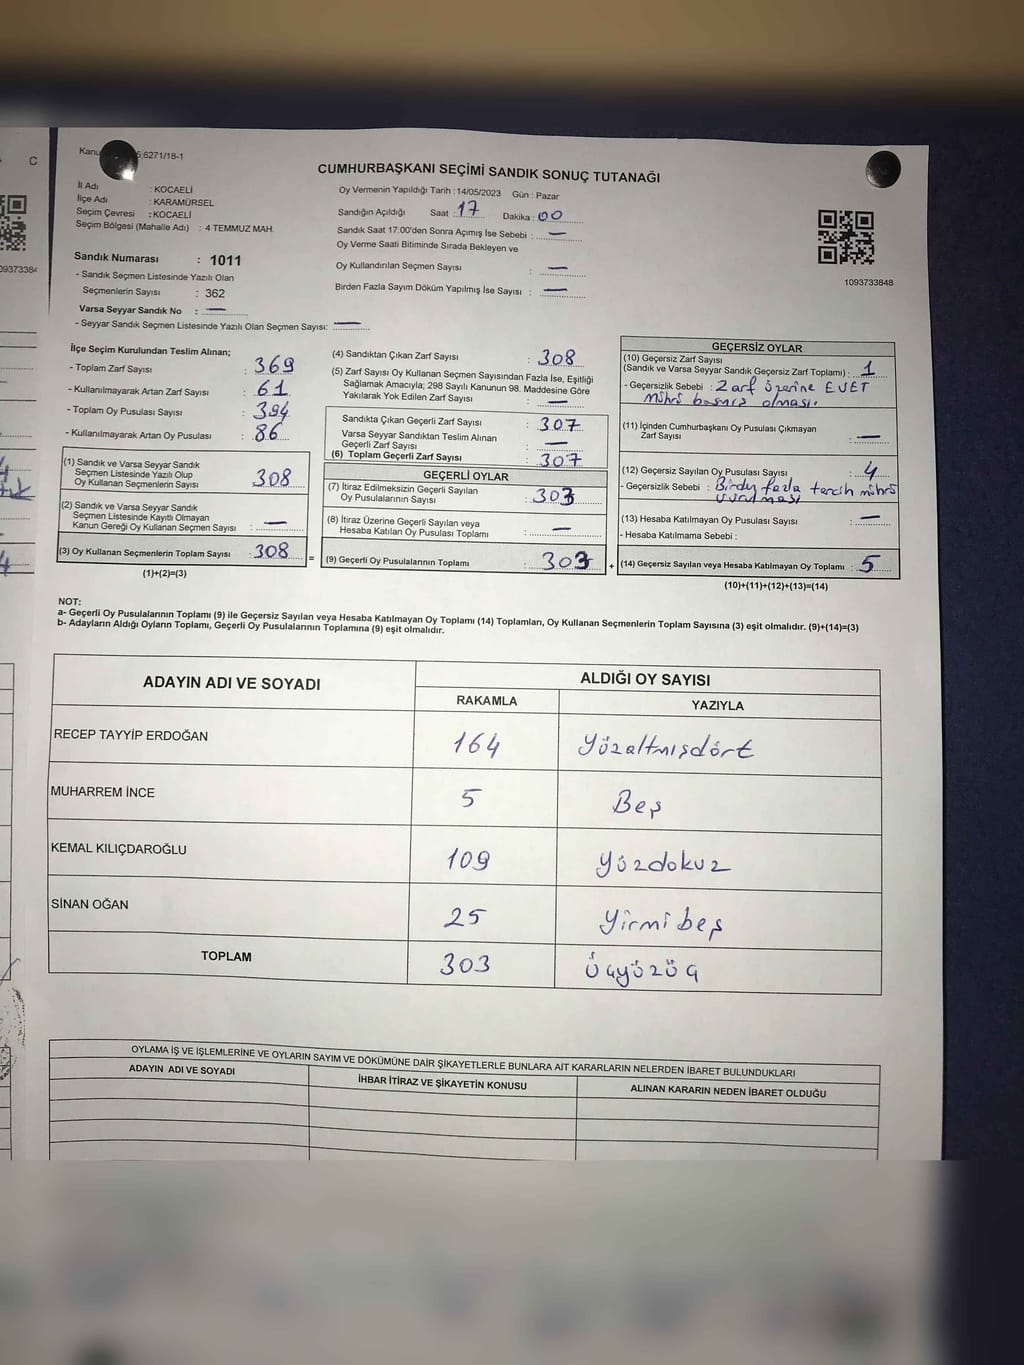 C
0937338
Kanu 5;6271/18-1
CUMHURBAŞKANI SEÇİMİ SANDIK SONUÇ TUTANAĞI
İl Adı : KOCAELİ
İlçe Adı : KARAMÜRSEL
Seçim Çevresi : KOCAELİ
Seçim Bölgesi (Mahalle Adı) : 4 TEMMUZ MAH.
Sandık Numarası : 1011
- Sandık Seçmen Listesinde Yazılı Olan
Seçmenlerin Sayısı : 362
Varsa Seyyar Sandık No : —
- Seyyar Sandık Seçmen Listesinde Yazılı Olan Seçmen Sayısı: —
Oy Vermenin Yapıldığı Tarih : 14/05/2023 Gün : Pazar
Sandığın Açıldığı Saat : 17 Dakika : 00
Sandık Saat 17:00'den Sonra Açımış İse Sebebi : —
Oy Verme Saati Bitiminde Sırada Bekleyen ve
Oy Kullandırılan Seçmen Sayısı : —
Birden Fazla Sayım Döküm Yapılmış İse Sayısı : —
1093733848
İlçe Seçim Kurulundan Teslim Alınan;
- Toplam Zarf Sayısı : 369
- Kullanılmayarak Artan Zarf Sayısı : 61
- Toplam Oy Pusulası Sayısı : 394
- Kullanılmayarak Artan Oy Pusulası : 86
(1) Sandık ve Varsa Seyyar Sandık
Seçmen Listesinde Yazılı Olup
Oy Kullanan Seçmenlerin Sayısı : 308
(2) Sandık ve Varsa Seyyar Sandık
Seçmen Listesinde Kayıtlı Olmayan
Kanun Gereği Oy Kullanan Seçmen Sayısı : —
(3) Oy Kullanan Seçmenlerin Toplam Sayısı : 308
(1)+(2)=(3)
=
(4) Sandıktan Çıkan Zarf Sayısı : 308
(5) Zarf Sayısı Oy Kullanan Seçmen Sayısından Fazla İse, Eşitliği
Sağlamak Amacıyla; 298 Sayılı Kanunun 98. Maddesine Göre
Yakılarak Yok Edilen Zarf Sayısı : —
Sandıkta Çıkan Geçerli Zarf Sayısı : 307
Varsa Seyyar Sandıktan Teslim Alınan
Geçerli Zarf Sayısı : —
(6) Toplam Geçerli Zarf Sayısı : 307
GEÇERLİ OYLAR
(7) İtiraz Edilmeksizin Geçerli Sayılan
Oy Pusulalarının Sayısı : 303
(8) İtiraz Üzerine Geçerli Sayılan veya
Hesaba Katılan Oy Pusulası Toplamı : —
(9) Geçerli Oy Pusulalarının Toplamı : 303
+
GEÇERSİZ OYLAR
(10) Geçersiz Zarf Sayısı
(Sandık ve Varsa Seyyar Sandık Geçersiz Zarf Toplamı) : 1
- Geçersizlik Sebebi : Zarf üzerine EVET
mührü basmış olması.
(11) İçinden Cumhurbaşkanı Oy Pusulası Çıkmayan
Zarf Sayısı : —
(12) Geçersiz Sayılan Oy Pusulası Sayısı : 4
- Geçersizlik Sebebi : fazla tercih mührü
vurulması
(13) Hesaba Katılmayan Oy Pusulası Sayısı : —
- Hesaba Katılmama Sebebi :
(14) Geçersiz Sayılan veya Hesaba Katılmayan Oy Toplamı : 5
(10)+(11)+(12)+(13)=(14)
NOT:
a- Geçerli Oy Pusulalarının Toplamı (9) ile Geçersiz Sayılan veya Hesaba Katılmayan Oy Toplamı (14) Toplamları, Oy Kullanan Seçmenlerin Toplam Sayısına (3) eşit olmalıdır. (9)+(14)=(3)
b- Adayların Aldığı Oyların Toplamı, Geçerli Oy Pusulalarının Toplamına (9) eşit olmalıdır.
ADAYIN ADI VE SOYADI
ALDIĞI OY SAYISI
RAKAMLA YAZIYLA
RECEP TAYYİP ERDOĞAN 164 Yüzaltmışdört
MUHARREM İNCE 5 Beş
KEMAL KILIÇDAROĞLU 109 Yüzdokuz
SİNAN OĞAN 25 Yirmi beş
TOPLAM 303 Üçyüzüç
OYLAMA İŞ VE İŞLEMLERİNE VE OYLARIN SAYIM VE DÖKÜMÜNE DAİR ŞİKAYETLERLE BUNLARA AİT KARARLARIN NELERDEN İBARET BULUNDUKLARI
ADAYIN ADI VE SOYADI İHBAR İTİRAZ VE ŞİKAYETİN KONUSU ALINAN KARARIN NEDEN İBARET OLDUĞU